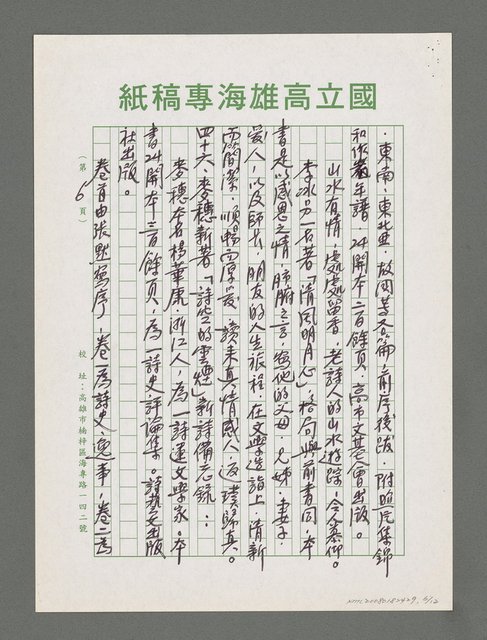 國立高雄海專稿紙
、東南、東北亞、故園等各篇、前序後跋、附照片集錦
和作者年譜。24開本二百餘頁，高市文藝會出版。
山水有情，處處留香，老詩人的山水遊踪，令人羨仰。
李冰另一名著「清風明月心」，格局與前書同，本
書是以感恩之情，肺腑之言，寫他的父母、兄姊、妻子、
愛人，以及師長，朋友的人生旅程，在文學造詣上，清新
而簡潔，順暢而淳美，讀來真情感人，返璞歸真。
四十六、麥穗新著「詩空的雲煙」新詩備忘錄：
麥穗本名楊華康，浙江人，為一詩運文學家。本
書24開本三百餘頁，為一詩史評論集。詩藝文出版
社出版。
卷首由張默寫序，卷一為詩史、逸事，卷二為
（第6頁）
校址：高雄市楠梓區海專路一四二號
NMTL20080182429. 6/12